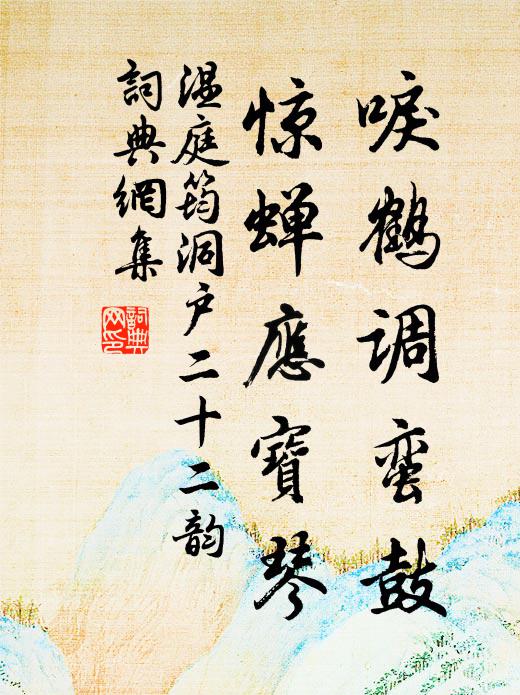 唳鹤调蛮鼓
惊蝉應寶琴
温庭筠洞户二十二韵
詞典網集
詞典网印